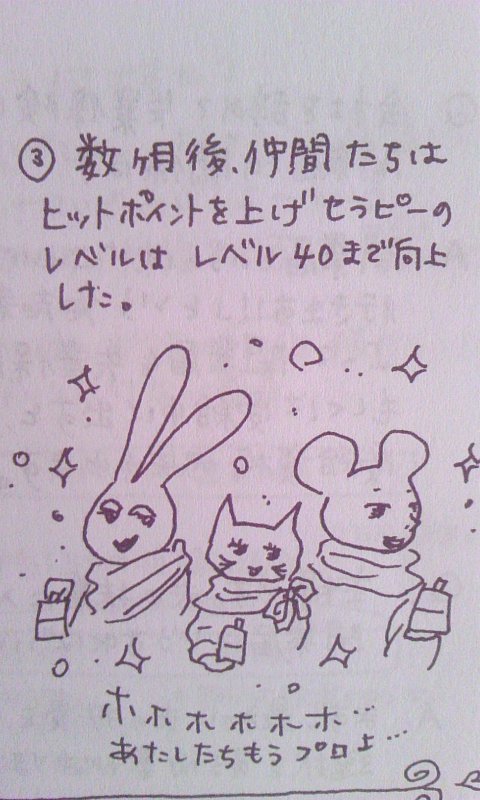 ③ 数ヶ月後、仲間たちは
ヒットポイントを上げセラピーの
レベルは レベル40まで向上
した。
ホホホホホホ…
あたしたちもうプロよ…